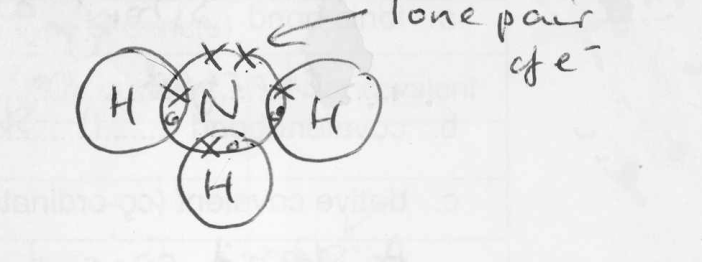 lone pair
of e⁻
H N H
H